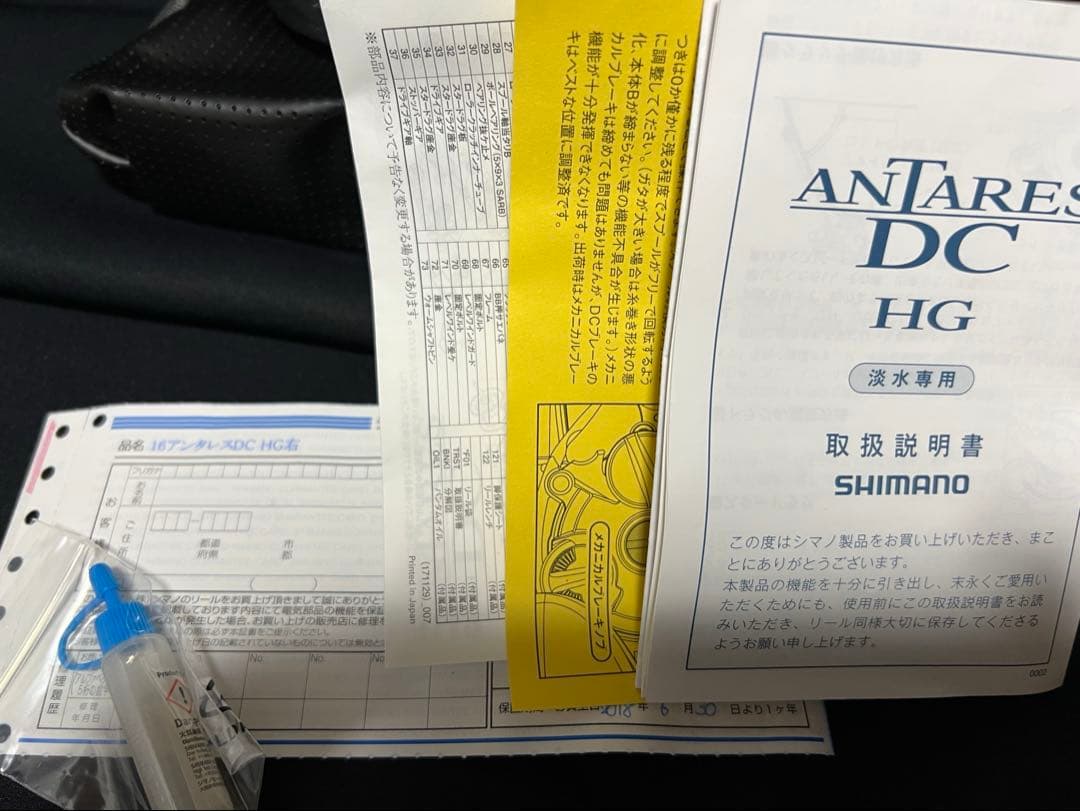 ANTARES
DC
HG
淡水専用
取扱説明書
SHIMANO
この度はシマノ製品をお買い上げいただき、まこ
とにありがとうございます。
本製品の機能を十分に引き出し、末永くご愛用い
ただくためにも、使用前にこの取扱説明書をお読
みいただき、リール同様大切に保存してくださる
ようお願い申し上げます。
0002
つきは0か僅かに残る程度でスプールがフリーで回転するよう
に調整してください。(ガタが大きい場合は糸巻き形状の悪
化、本体Bが締まらない等の機能不具合が生じます。)メカニ
カルブレーキは締めても問題はありませんが、DCブレーキの
機能が十分発揮できなくなります。出荷時はメカニカルブレー
キはベストな位置に調整済です。
メカニカルブレーキノブ
27
28 スプール軸当タリB
29 ボールベアリング(5×9×3 SARB)
30 ベアリング抜ケ止メ
31 ローラークラッチインナーチューブ
32 スタードラグ板
33 スタードラグ座金
34 ドライブギア
35 スタードラグ座金
36 ストッパーギア
37 ドライブギア軸
65
66 BB押サエバネ
67 フレーム
68 固定ボルト
69 レベルワインドガード
70 固定ボルト
71 レベルワインド受ケ
72 座金
73 ウォームシャフトピン
121 脚保護シート (付属品)
122 リールレンチ (付属品)
*F01 リール袋 (付属品)
TRST 取扱説明書 (付属品)
BNKI 分解図 (付属品)
OIL1 バンタムオイル (付属品)
※部品内容について予告なく変更する場合があります。
(171129)_007
Printed in Japan
品名 16アンタレスDC HG右
フリガナ
お名前
ご住所
都道
府県
市
郡
No.
No.
No.
修理
年月日
2018年 6月30日より1ヶ年